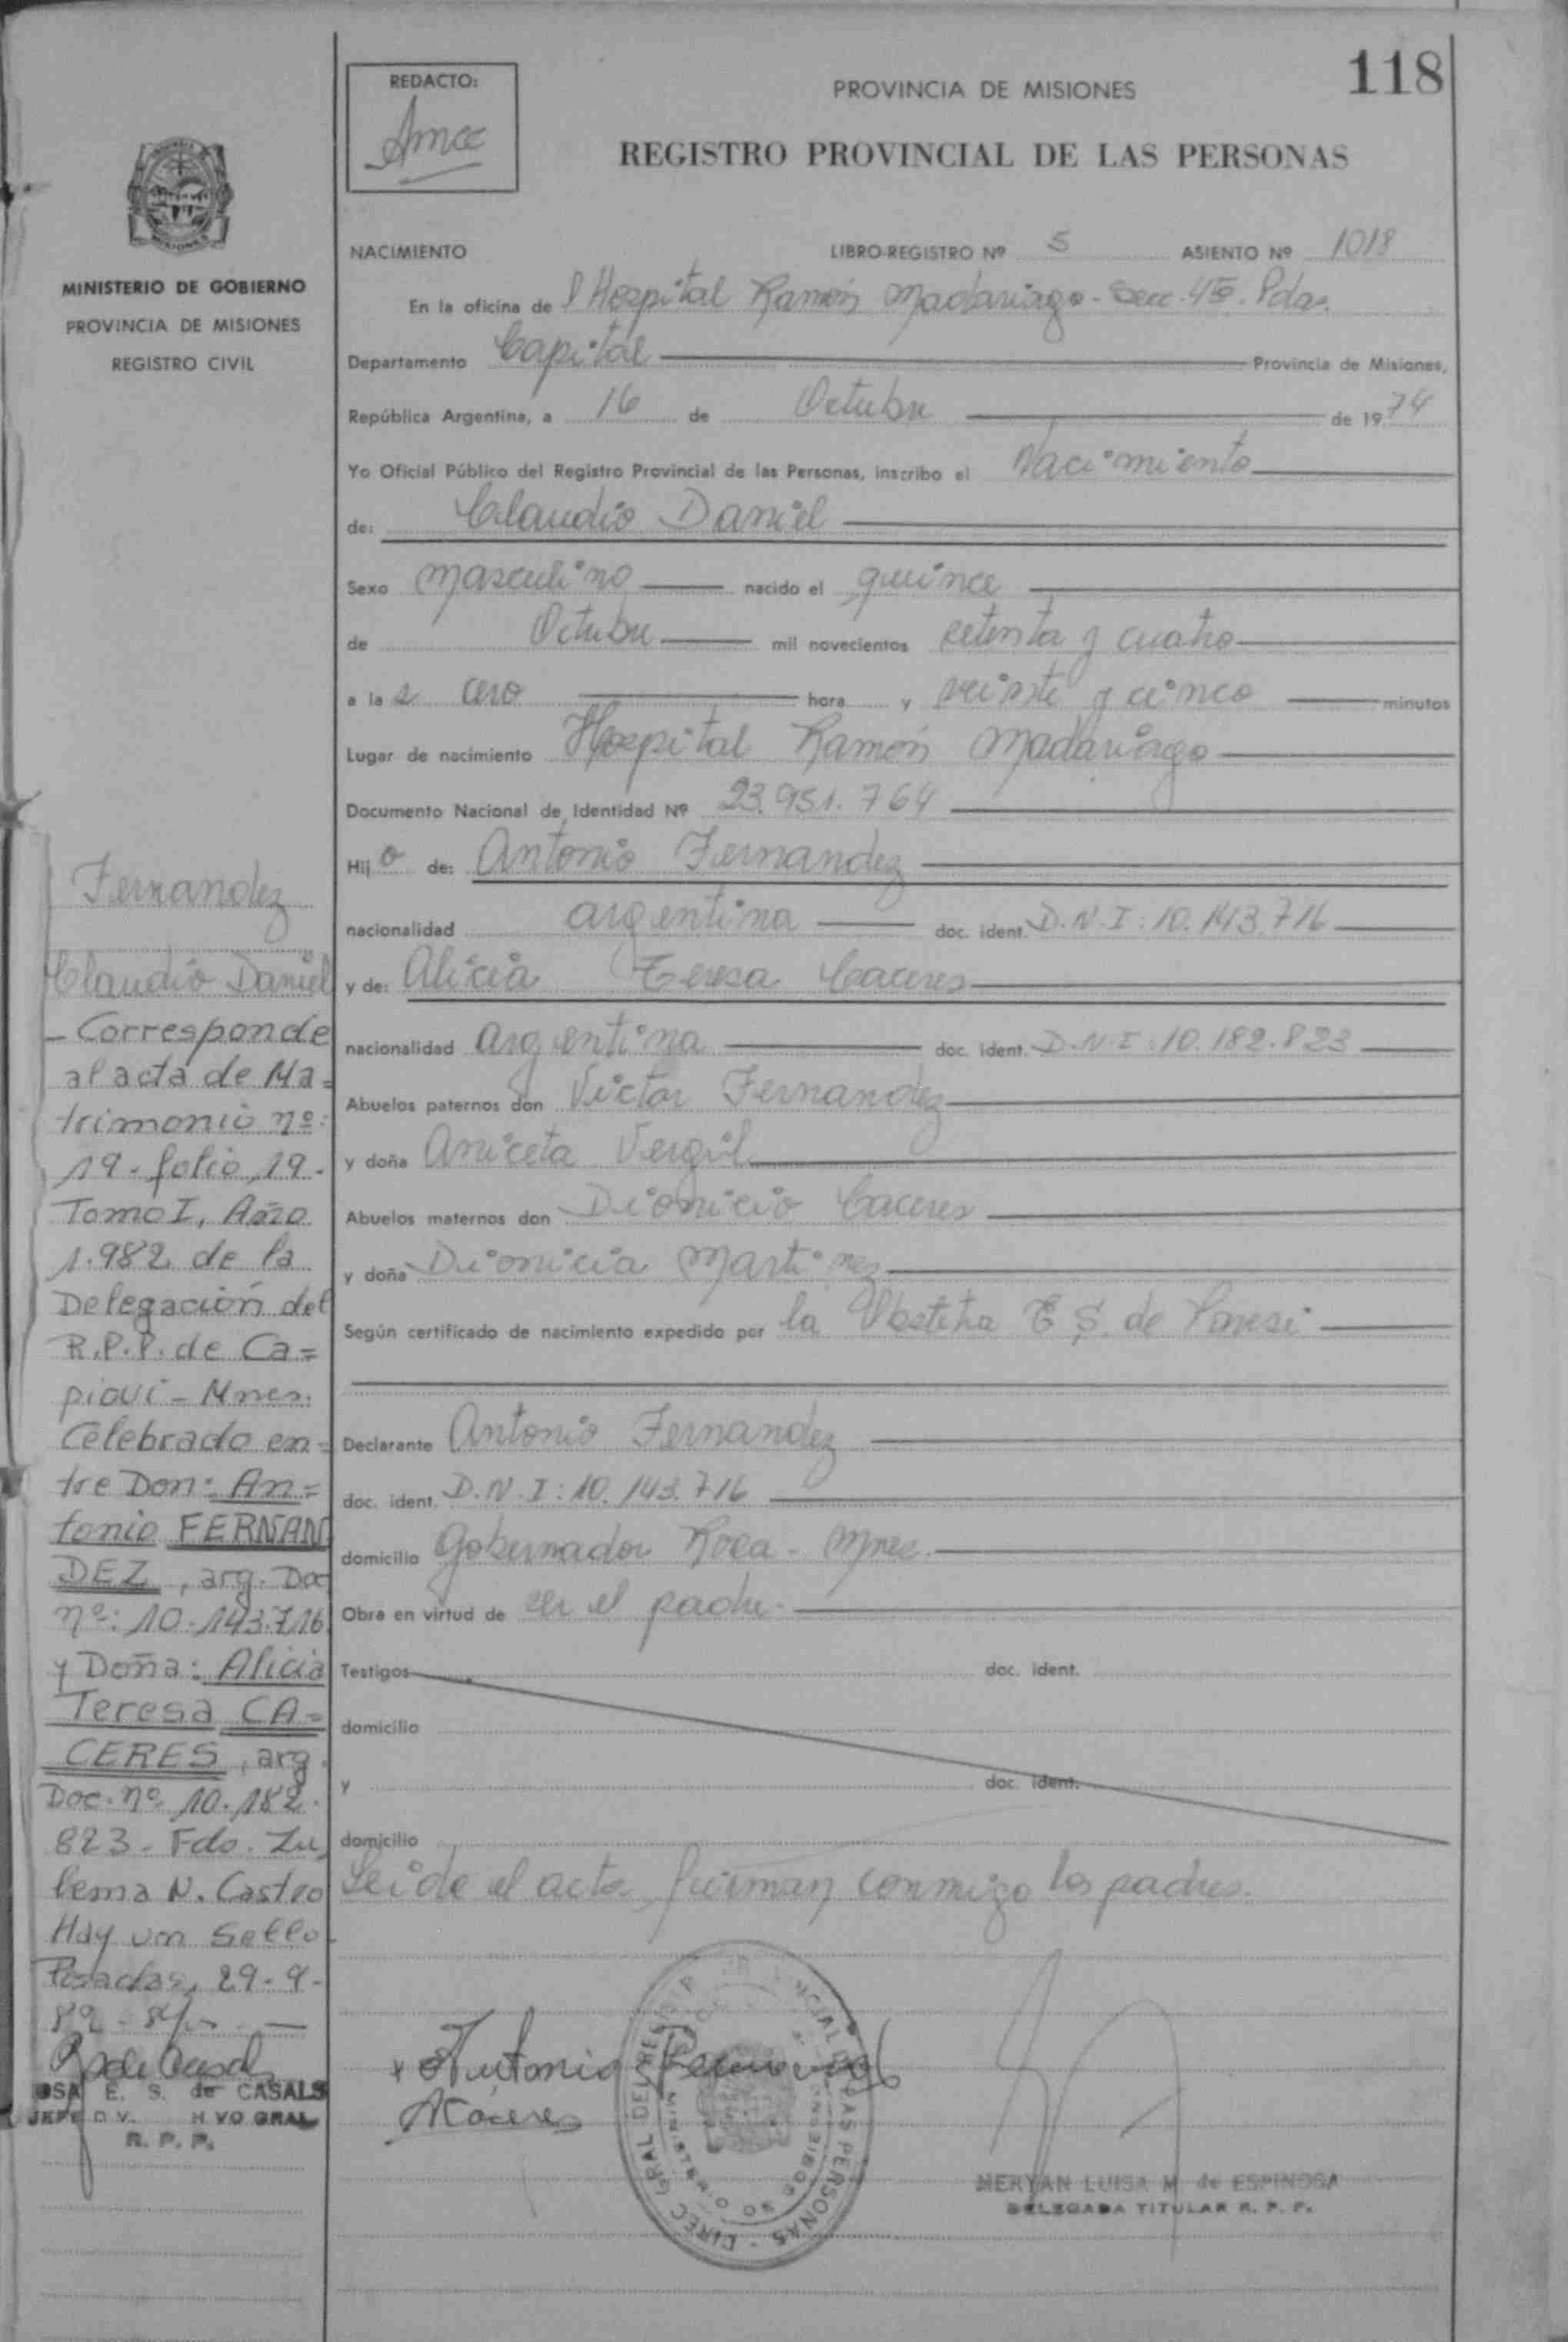 118
REDACTO:
PROVINCIA DE MISIONES
REGISTRO PROVINCIAL DE LAS PERSONAS
MINISTERIO DE GOBIERNO
PROVINCIA DE MISIONES
REGISTRO CIVIL
NACIMIENTO LIBRO-REGISTRO Nº 5 ASIENTO Nº 1018
En la oficina de l Hospital Ramón Madariaga - Secc. 4ta. Pdas.
Departamento Capital Provincia de Misiones,
República Argentina, a 16 de Octubre de 1974
Yo Oficial Público del Registro Provincial de las Personas, inscribo el Nacimiento
de: Claudio Daniel
Sexo masculino nacido el quince
de Octubre mil novecientos setenta y cuatro
a las cero hora y veinte y cinco minutos
Lugar de nacimiento Hospital Ramón Madariaga
Documento Nacional de Identidad Nº 23.951.764
Hijo de: Antonio Fernandez
nacionalidad argentina doc. ident. D.N.I: 10.143.716
y de: Alicia Teresa Caceres
nacionalidad argentina doc. ident. D.N.I: 10.182.823
Abuelos paternos don Victor Fernandez
y doña Aniceta Vergil
Abuelos maternos don Dionicio Caceres
y doña Dionicia Martinez
Según certificado de nacimiento expedido por la Obstetra E S. de
Declarante Antonio Fernandez
doc. ident. D.N.I: 10.143.716
domicilio Gobernador Roca - Mnes.
Obra en virtud de ser el padre.
Testigos doc. ident.
domicilio
y doc. ident.
domicilio
Leida el acta firman conmigo los padres.
Antonio Fernandez
ACaceres
MERYAN LUISA M. de ESPINOSA
DELEGADA TITULAR R. P. P.
Fernandez
Claudio Daniel
- Corresponde
al acta de Ma=
trimonio nº:
19 - folio 19.
Tomo I, Año
1.982 de la
Delegación del
R.P.P. de Ca=
piovi - Mnes.
Celebrado en=
tre Don: An=
tonio FERNAN
DEZ, arg. Doc
nº: 10.143.716
y Doña: Alicia
Teresa CA=
CERES, arg.
Doc. nº 10.182.
823 - Fdo. Zu
lema N. Castro
Hay un Sello.
Posadas, 29-9-
82
OSA E. S. de CASALS
R. P. P.